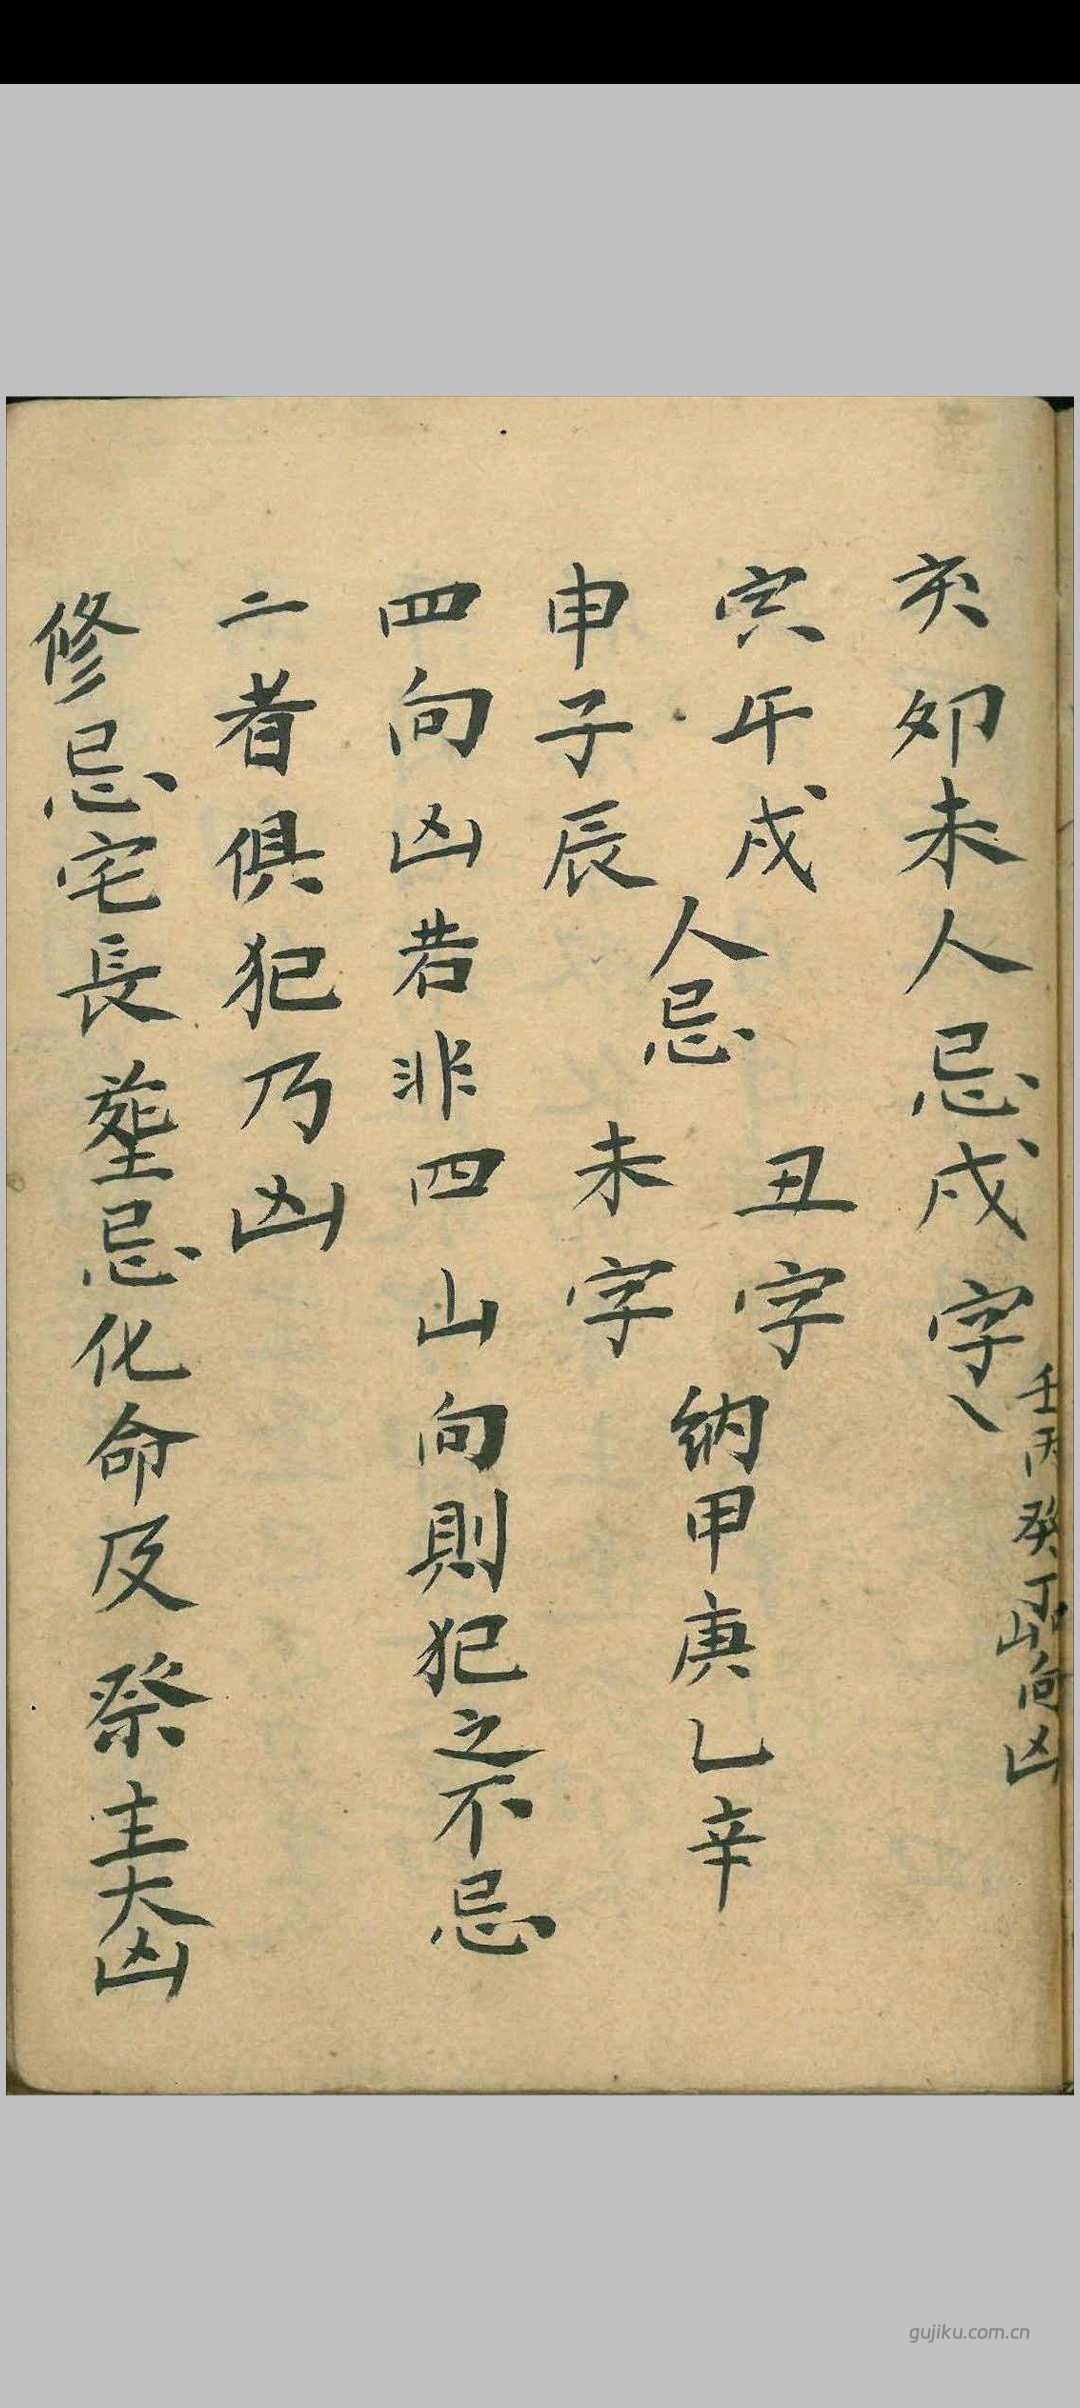 亥卯未人忌戌字
壬丙癸丁山向凶
寅午戌
申子辰
人忌
丑字
未字
納甲庚乙辛
四向凶若非四山向則犯之不忌
二者俱犯乃凶
修忌宅長塟忌化命及祭主大凶
gujiku.com.cn